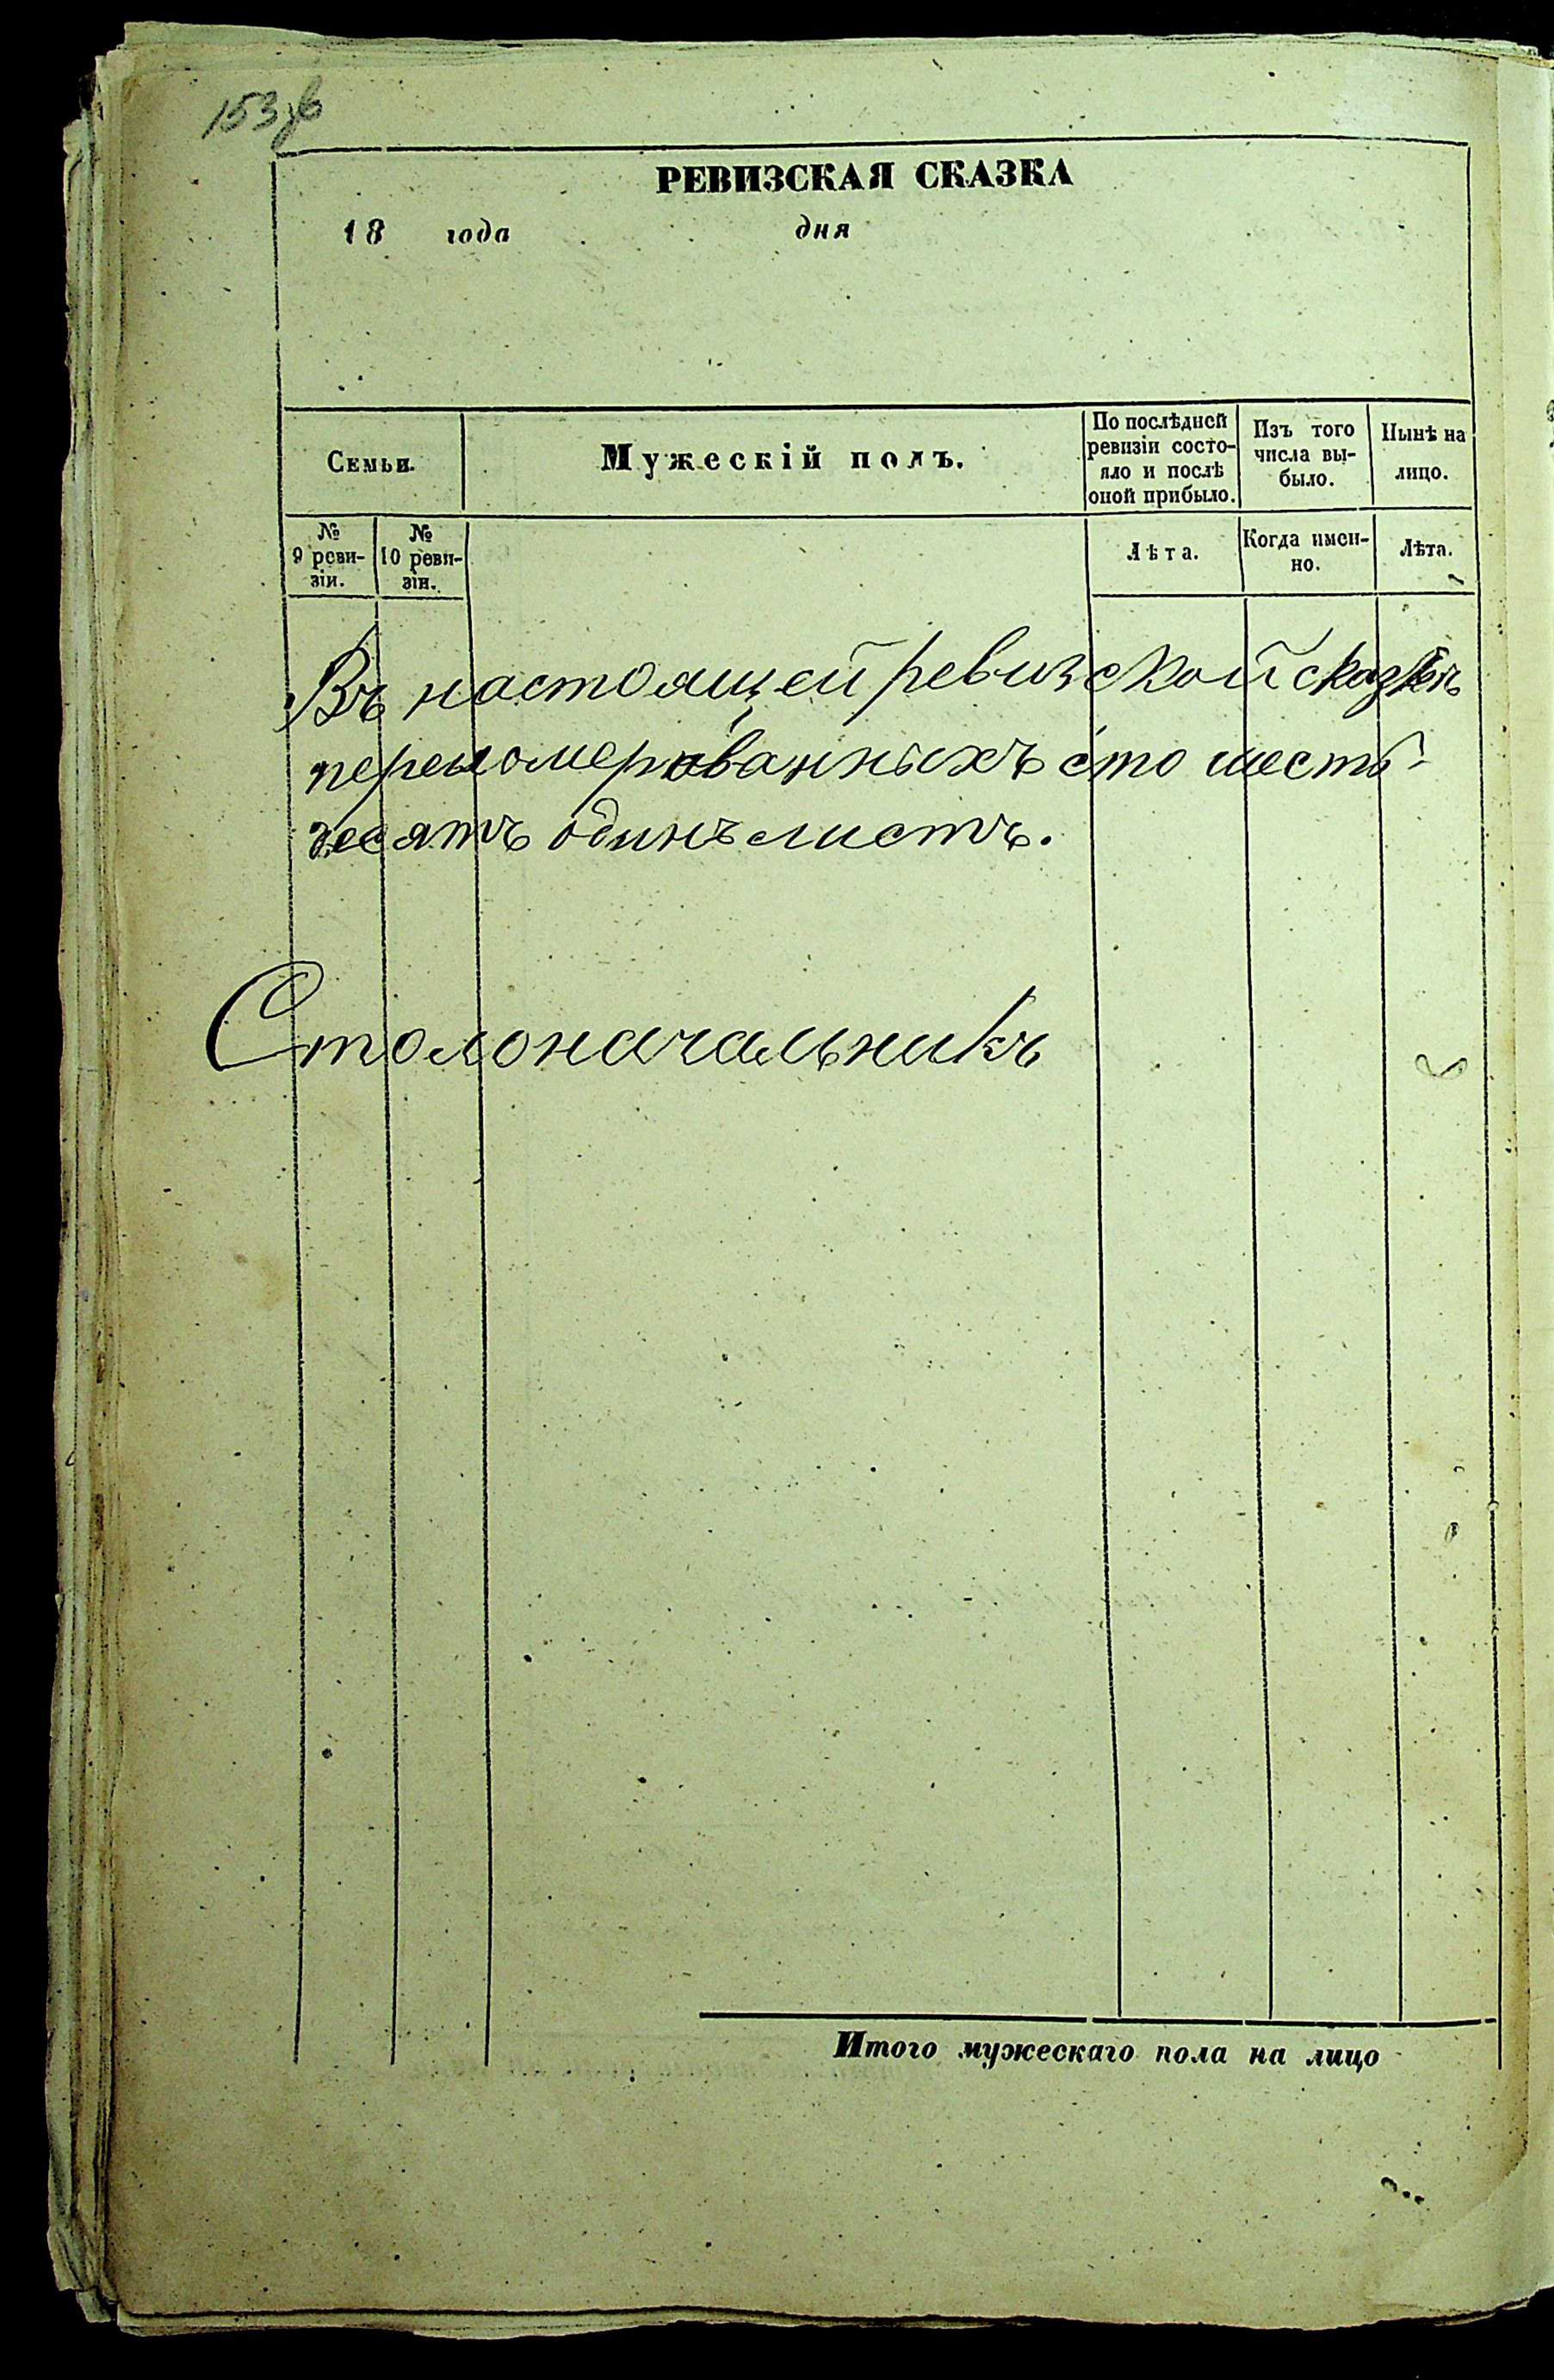 153об
РЕВИЗСКАЯ СКАЗКА
18 года дня
Семьи.
Мужескій полъ.
По послѣдней
ревизіи состо-
яло и послѣ
оной прибыло.
Изъ того
числа вы-
было.
Нынѣ на
лицо.
№
9 реви-
зіи.
№
10 реви-
зіи.
Лѣта.
Когда имен-
но.
Лѣта.
Въ настоящей ревизской сказкѣ
переномерованныхъ сто шесть-
десятъ одинъ листъ.
Столоначальникъ
Итого мужескаго пола на лицо